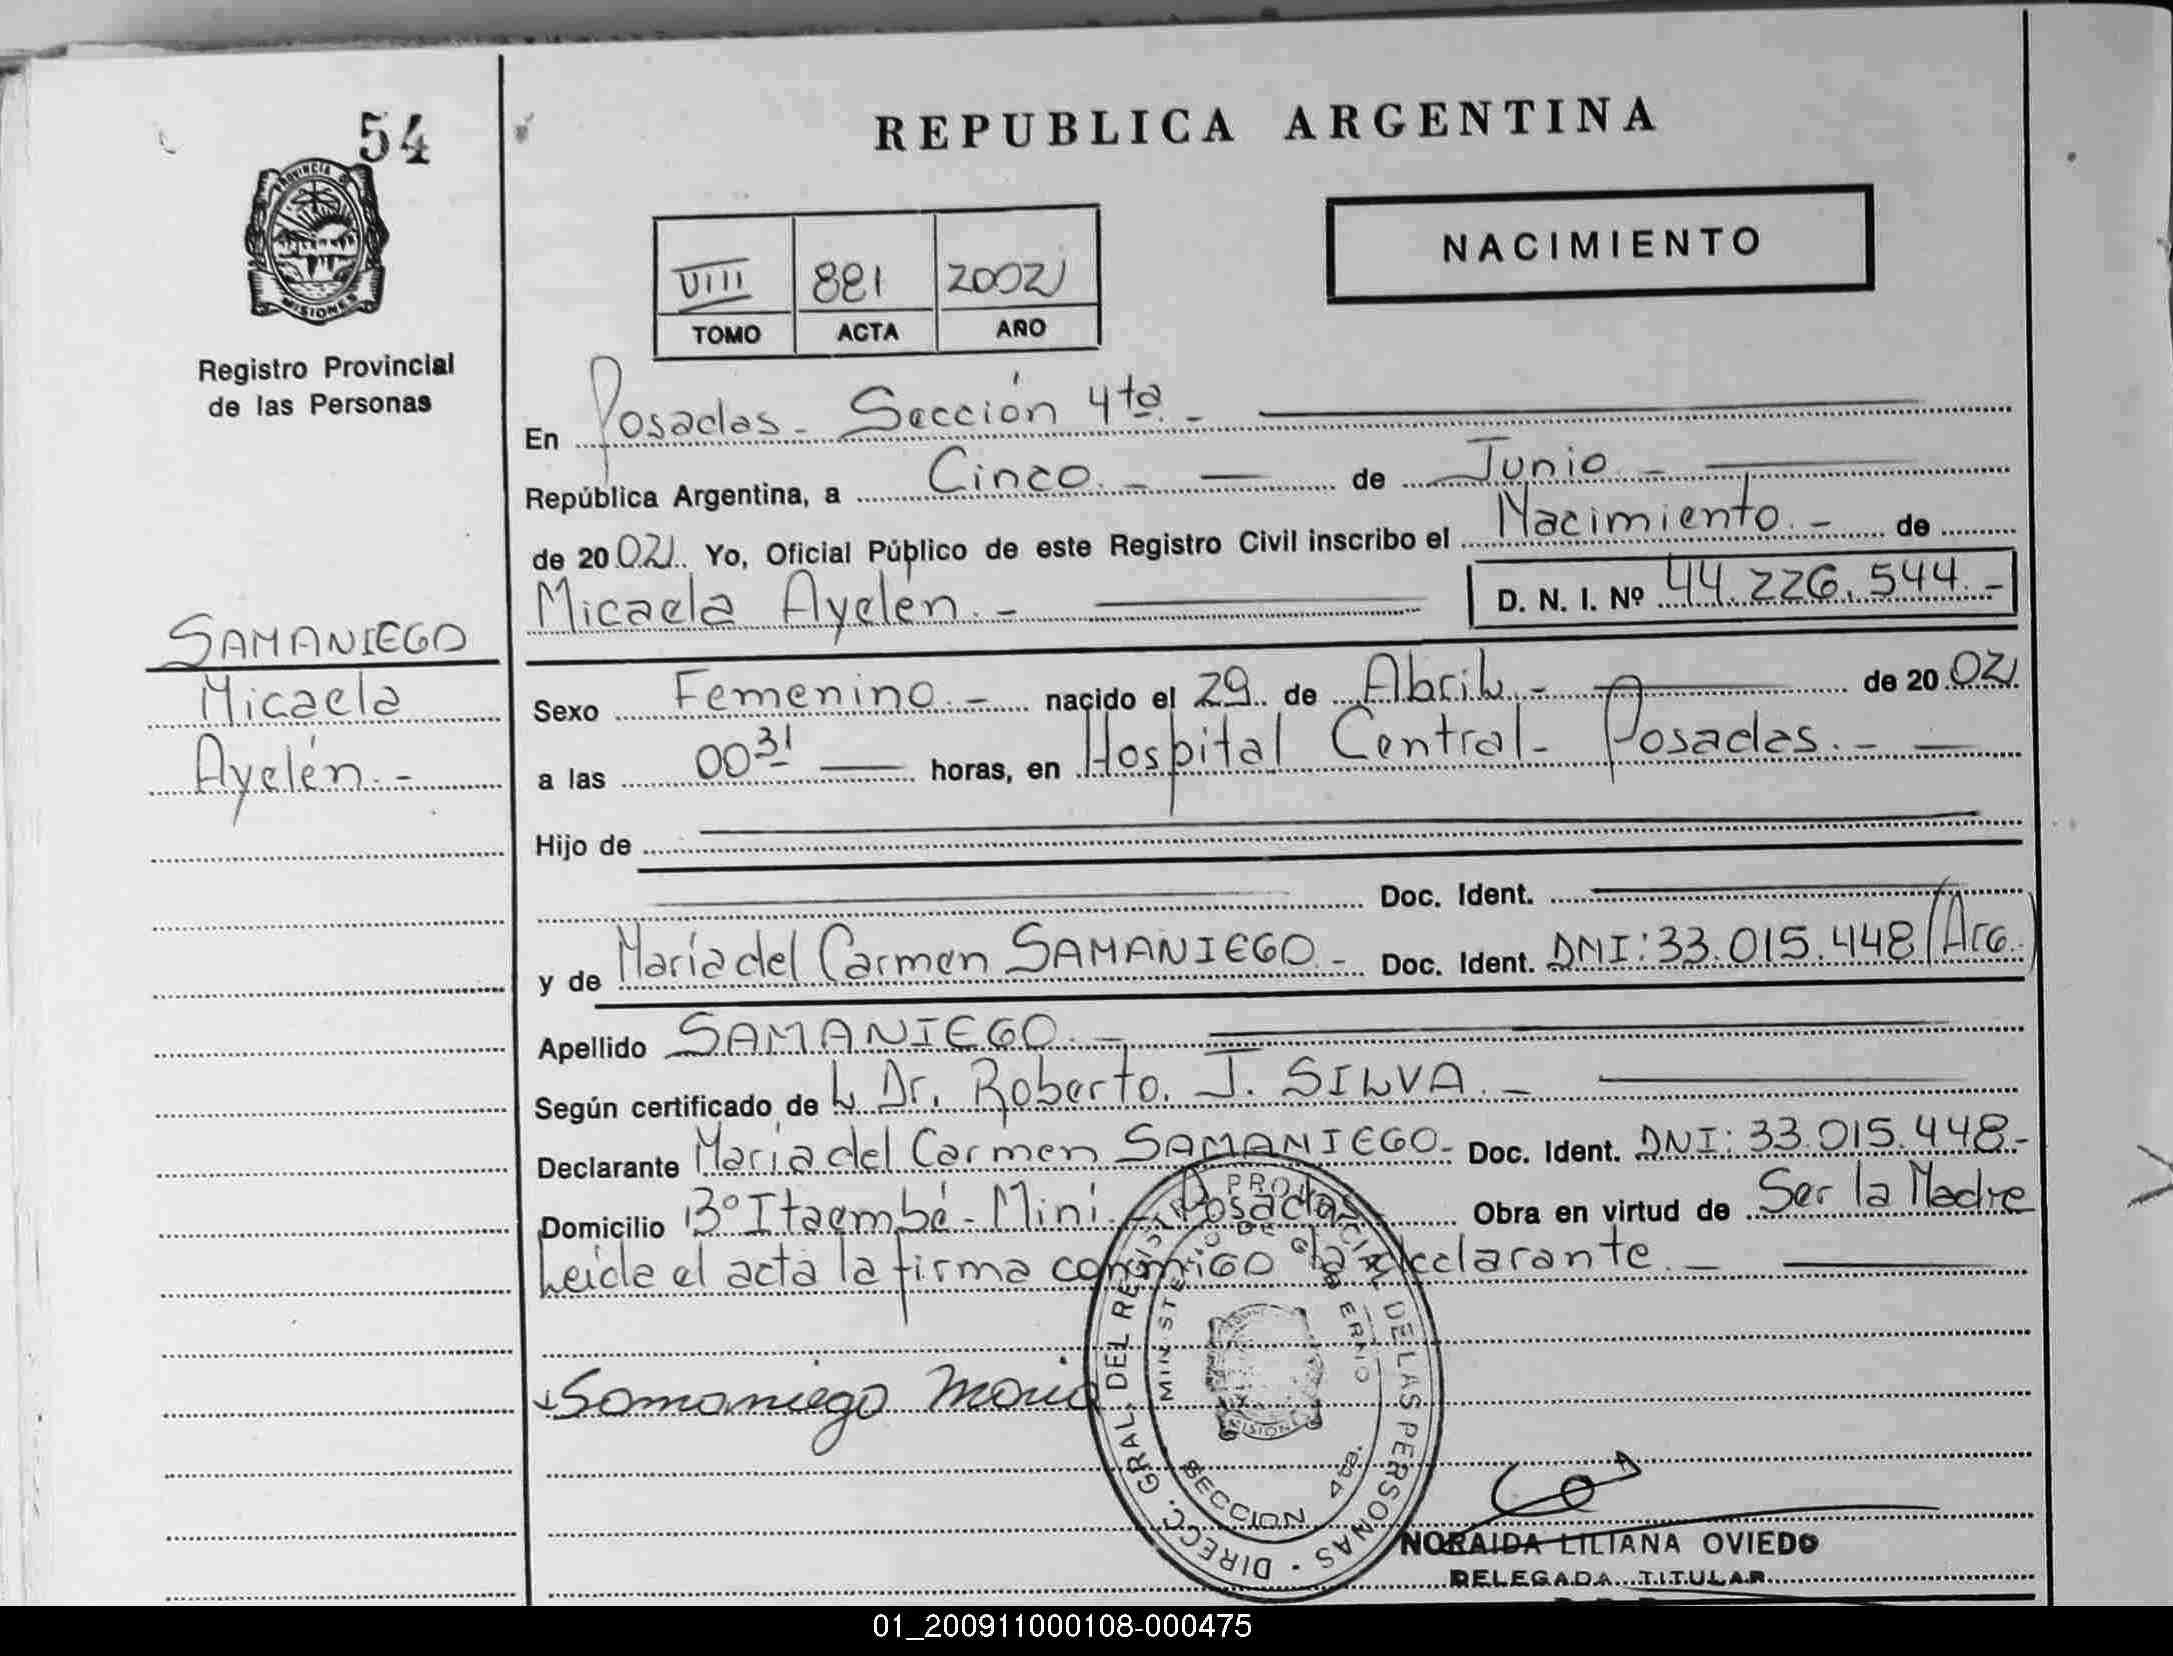 54
PROVINCIA DE
MISIONES
Registro Provincial
de las Personas
SAMANIEGO
Micaela
Ayelén.-
REPUBLICA ARGENTINA
NACIMIENTO
VIII 881 2002
TOMO ACTA AÑO
En Posadas - Sección 4ta.-
República Argentina, a Cinco.- de Junio.-
de 20 02. Yo, Oficial Público de este Registro Civil inscribo el Nacimiento.- de
Micaela Ayelen.- D. N. I. Nº 44.226.544.-
Sexo Femenino.- nacido el 29 de Abril.- de 20 02
a las 00 31 horas, en Hospital Central - Posadas.-
Hijo de
Doc. Ident.
y de María del Carmen SAMANIEGO.- Doc. Ident. DNI: 33.015.448 (Arg.)
Apellido SAMANIEGO.-
Según certificado de L Dr. Roberto. J. SILVA.-
Declarante María del Carmen SAMANIEGO- Doc. Ident. DNI: 33.015.448.-
Domicilio Bº Itaembé - Miní - Posadas Obra en virtud de Ser la Madre
Leída el acta la firma conmigo la declarante.-
Samaniego Maria
DIRECC. GRAL. DEL REGIST. PROVINCIAL DE LAS PERSONAS
MINISTERIO DE GOBIERNO
MISIONES
SECCION 4ta.
NORAIDA LILIANA OVIEDO
DELEGADA TITULAR
01_200911000108-000475